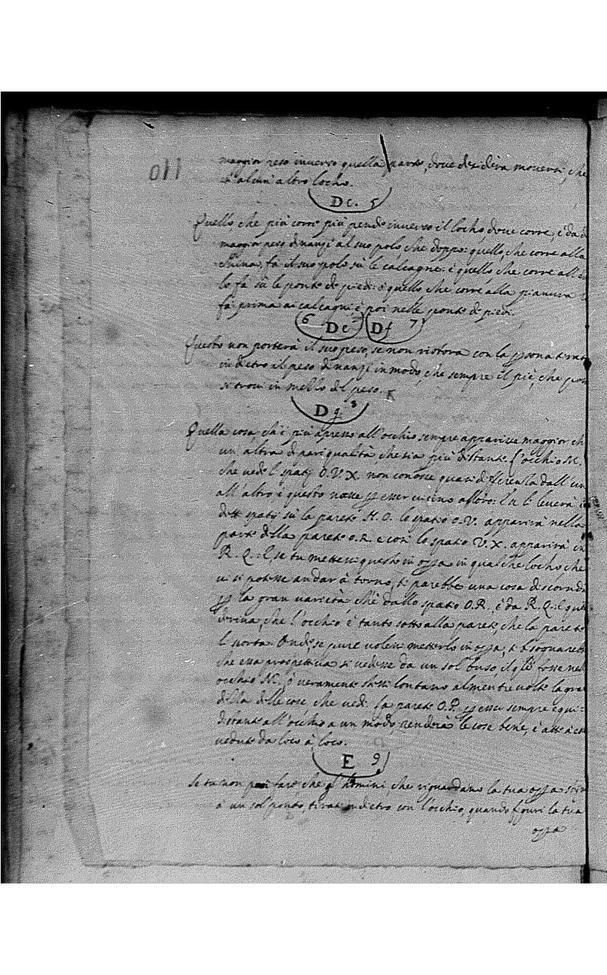 110
maggior peso inverso quella parte, dove desidera moversi, che
in alcun altro locho.
De. 5
Quello che più corre più pende inverso il locho dove corre, e da di
maggior peso dinanzi al suo polo che doppo: quello, che corre alla
china, fa il suo polo su le calcagne: e quello che corre all'e
lo fa su le ponte de piedi: e quello che corre alla pianura
fa prima ai calcagni e poi nelle ponte de piedi.
6 De Df 7
Questo non porterà il suo peso, se non ristora con la persona
indietro il peso dinanzi in modo, che sempre il piè, che
si trovi in mezzo del peso.
Dg. 8
Quella cosa, ch'è più apresso all'occhio sempre apparisce maggior ch
un' altra di pari qualità, che sia più distante. L'occhio M.
che vede l' spatij O.V.X. non conosce quasi differenza dall' un
all' altro e questo nasce per esser vicino
detti spatij su la parete H.O. lo spatio O.V. apparirà nella
parte della parete O.R. e così lo spatio V.X. apparirà in
R.Q. E, se tu mettessi questo in opera in qualche locho che
vi si potesse andar à torno, ti parebbe una cosa discorde
per la gran varietà ch'è dallo spatio O.R. è da R.Q. E que
deriva, che l'occhio è tanto sotto alla parete, che la parete
Onde, se pure volessi metterlo in opera, ti bisognareb
che essa prospettiva si vedesse da un sol buso, il qle fosse nel
occhio M. o veramente stessi lontano almen tre volte la gran
dezza delle cose che vedi. la parete O.P. per esser sempre equi
distante all'occhio a un modo renderà le cose bene, è atte à es
vedute da loco à loco.
E 9
Se tu non poi fare che gl' homini, che riguardano la tua opera stiin
à un sol ponto, tirati indietro con l'occhio, quando figuri la tua
opera